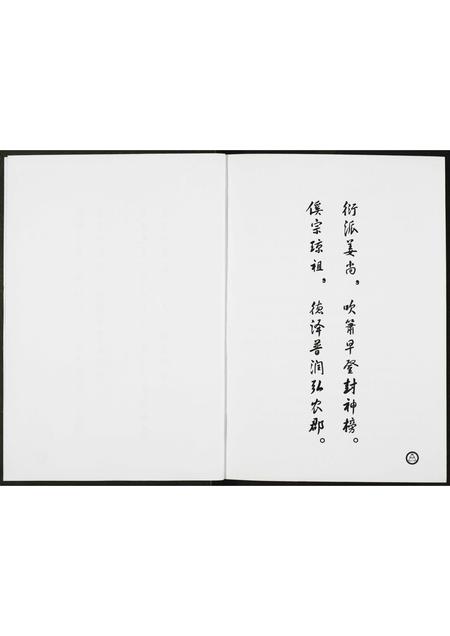 衍派姜尚，吹箫早登封神榜。
侯宗琼祖，德泽普润弘农郡。